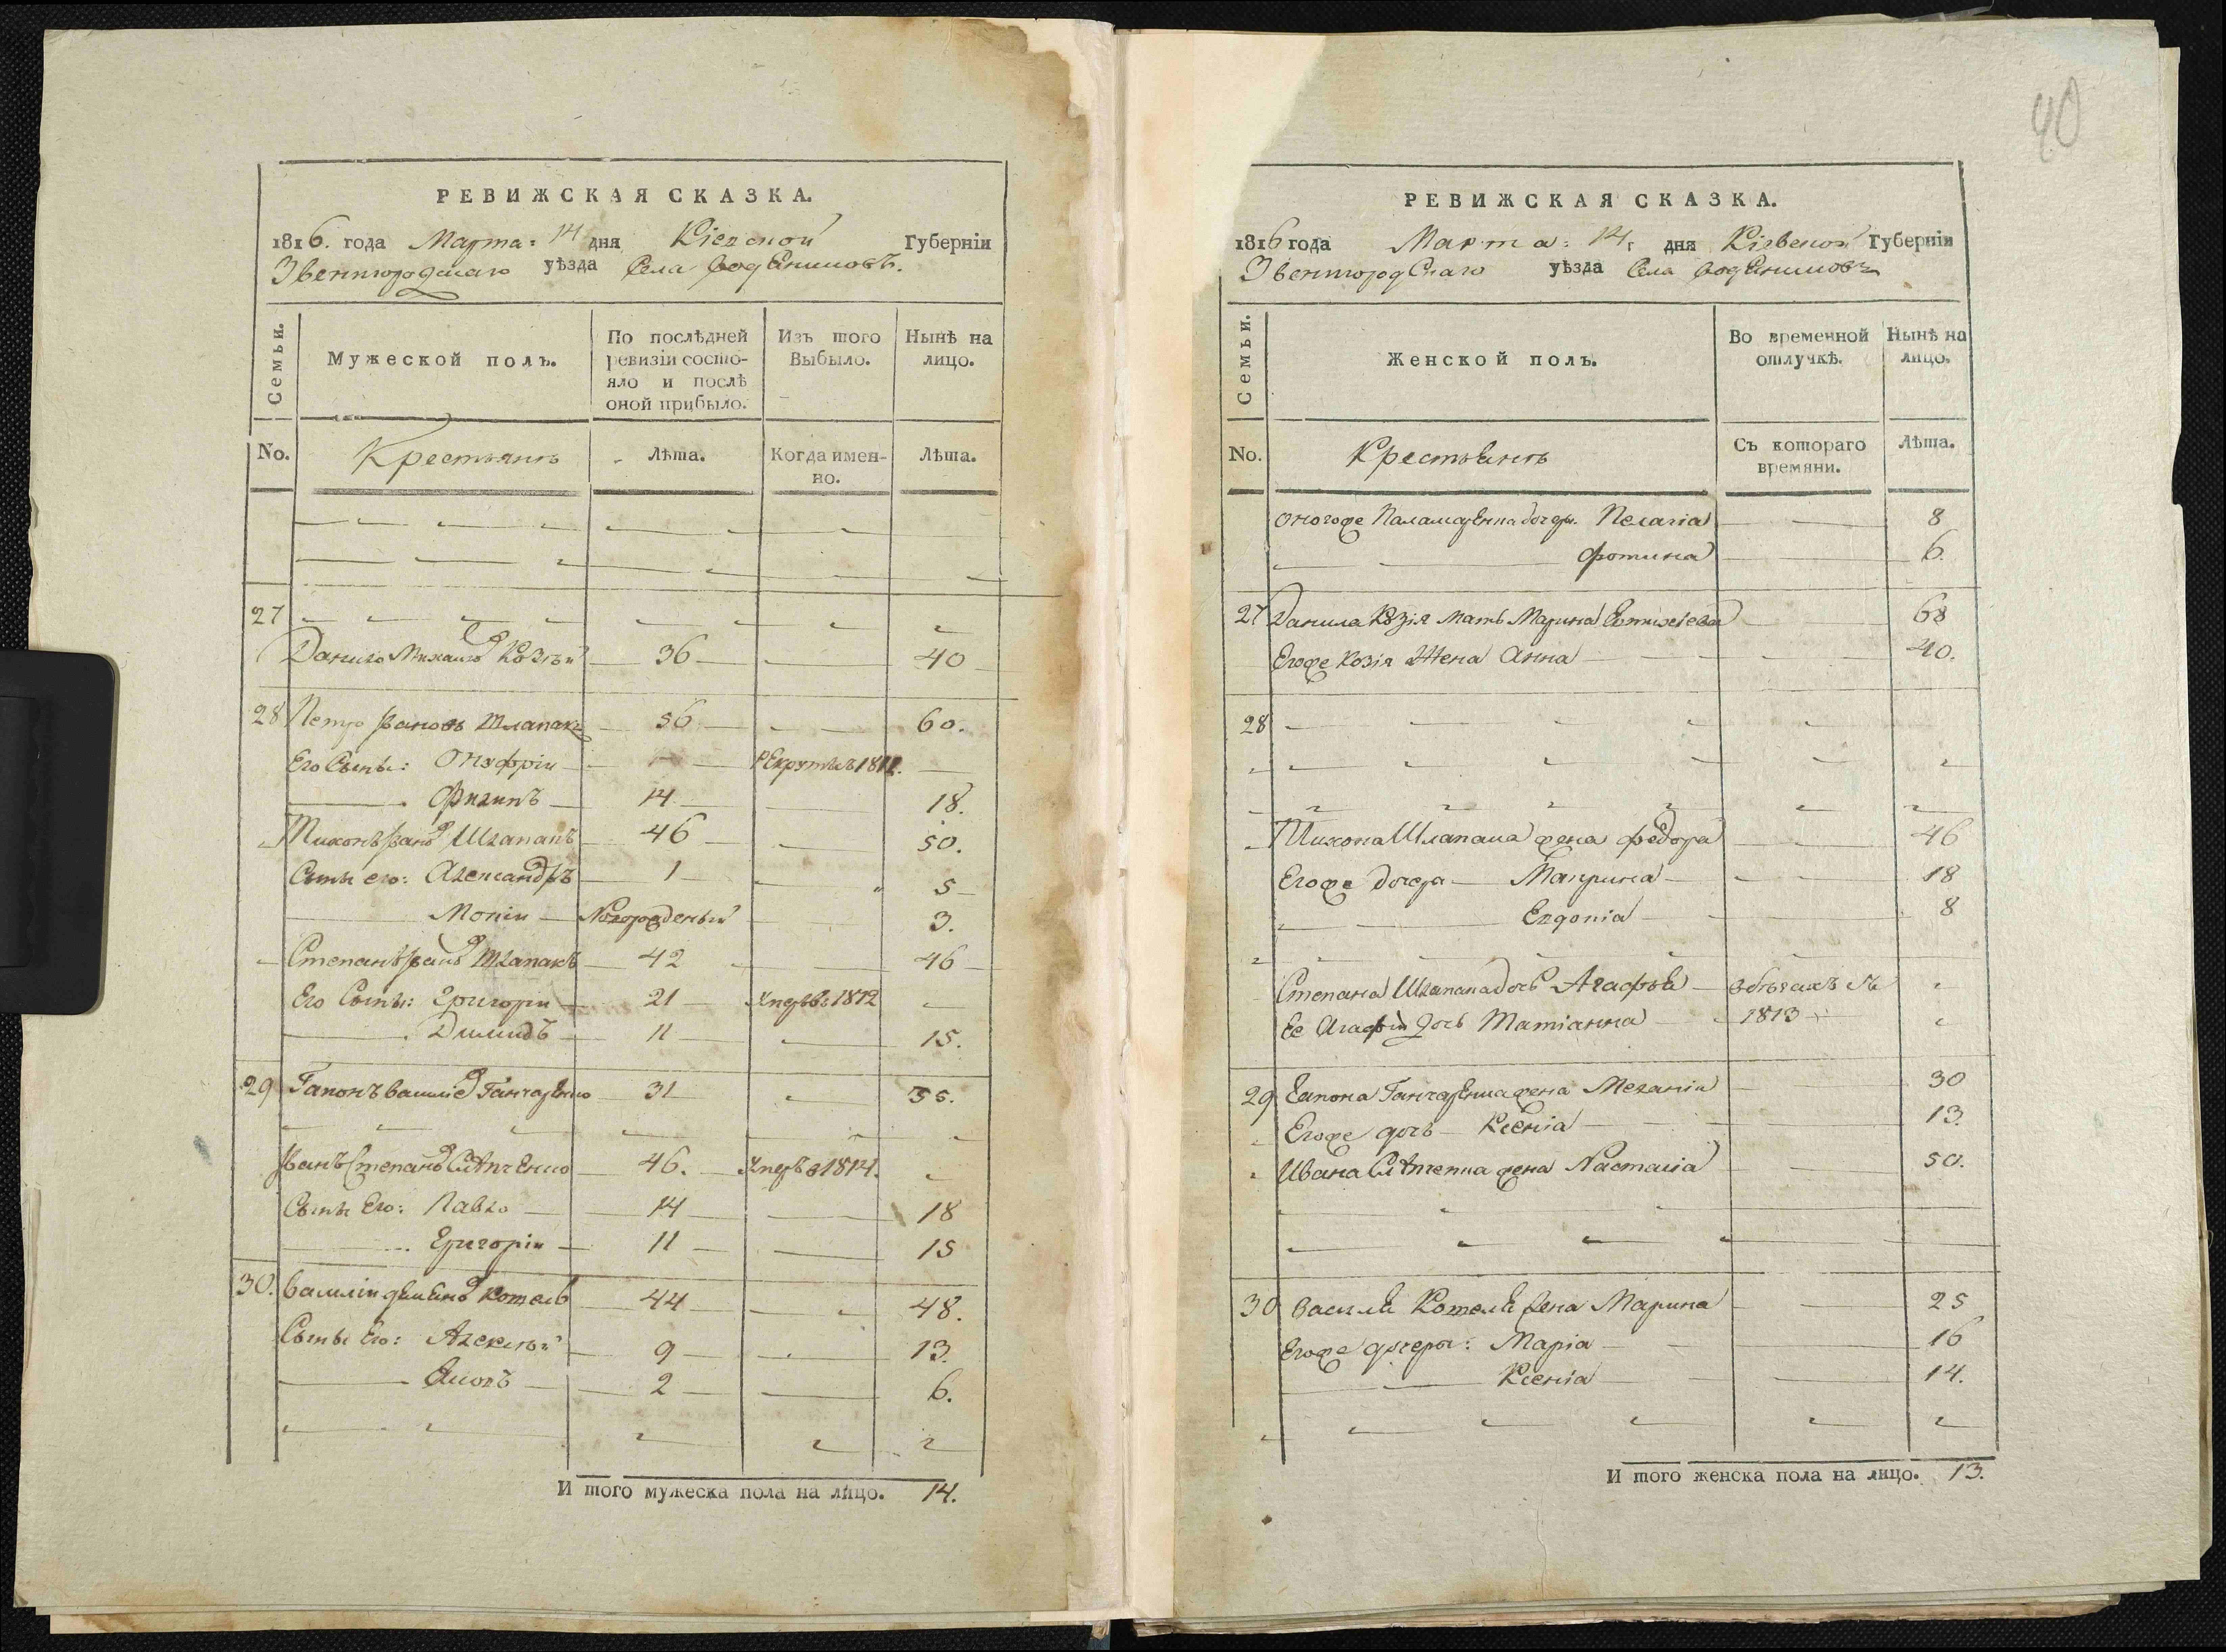 РЕВИЖСКАЯ СКАЗКА.
1816. года Марта: 14 дня Кіевской Губерніи
Звенигородскаго уѣзда Села
Семьи.
Мужеской полъ.
По послѣдней ревизіи состо-
яло и послѣ
оной прибыло.
Изъ того
Выбыло.
Нынѣ на
лицо.
No. Крестьянъ Лѣта. Когда имен-
но. Лѣта.
27
Данило Михайловъ Козѣй 36 40
28 Петро Ивановъ Шлапакъ 56 60.
Его Сыны: Онуфрiи Рекрутъ в 1811.
Филипъ 14 18.
Тихонъ Ивановъ Шлапакъ 46 50.
Сыны его: Александръ 1 5
Мокіи Новорожденый 3.
Степанъ Ивановъ Шлапакъ 42 46
Его Сыны: Григорiи 21 Умеръ в 1812
Димидъ 11 15.
29 Гапонъ Гончаренко 31 35.
Иванъ Степановъ 46. Умеръ в 1814.
Сыны Его: Павло 14 18
Григорiи 11 15
30. Василiи Котель 44 48.
Сыны Его: Алексѣй 9 13.
Яковъ 2 6.
И того мужеска пола на лицо. 14.
40
РЕВИЖСКАЯ СКАЗКА.
1816 года Марта: 14. дня Кіевской Губерніи
Звенигородскаго уѣзда Села
Семьи.
Женской полъ.
Во временной
отлучкѣ.
Нынѣ на
лицо.
No. Крестьянъ Съ котораго
времяни. Лѣта.
Пелагіа 8
Фотина 6.
27 Данила Козія мать Марина 68
Егоже Козія Жена Анна 40.
28
Тихона Шлапака жена Федора 46
Егоже дочера Макрина 18
Евдокіа 8
Степана Шлапака дочь Агафья в бѣгахъ съ
Ее Агафiи дочь Татіанна 1813
29 Гапона Гончаренка жена Меланіи 30
Егоже дочь Ксеніа 13.
Ивана жена Настасіа 50.
30 Василя Котеля жена Марина 25
Егоже дочеры: Маріа 16
Ксеніа 14.
И того женска пола на лицо. 13.